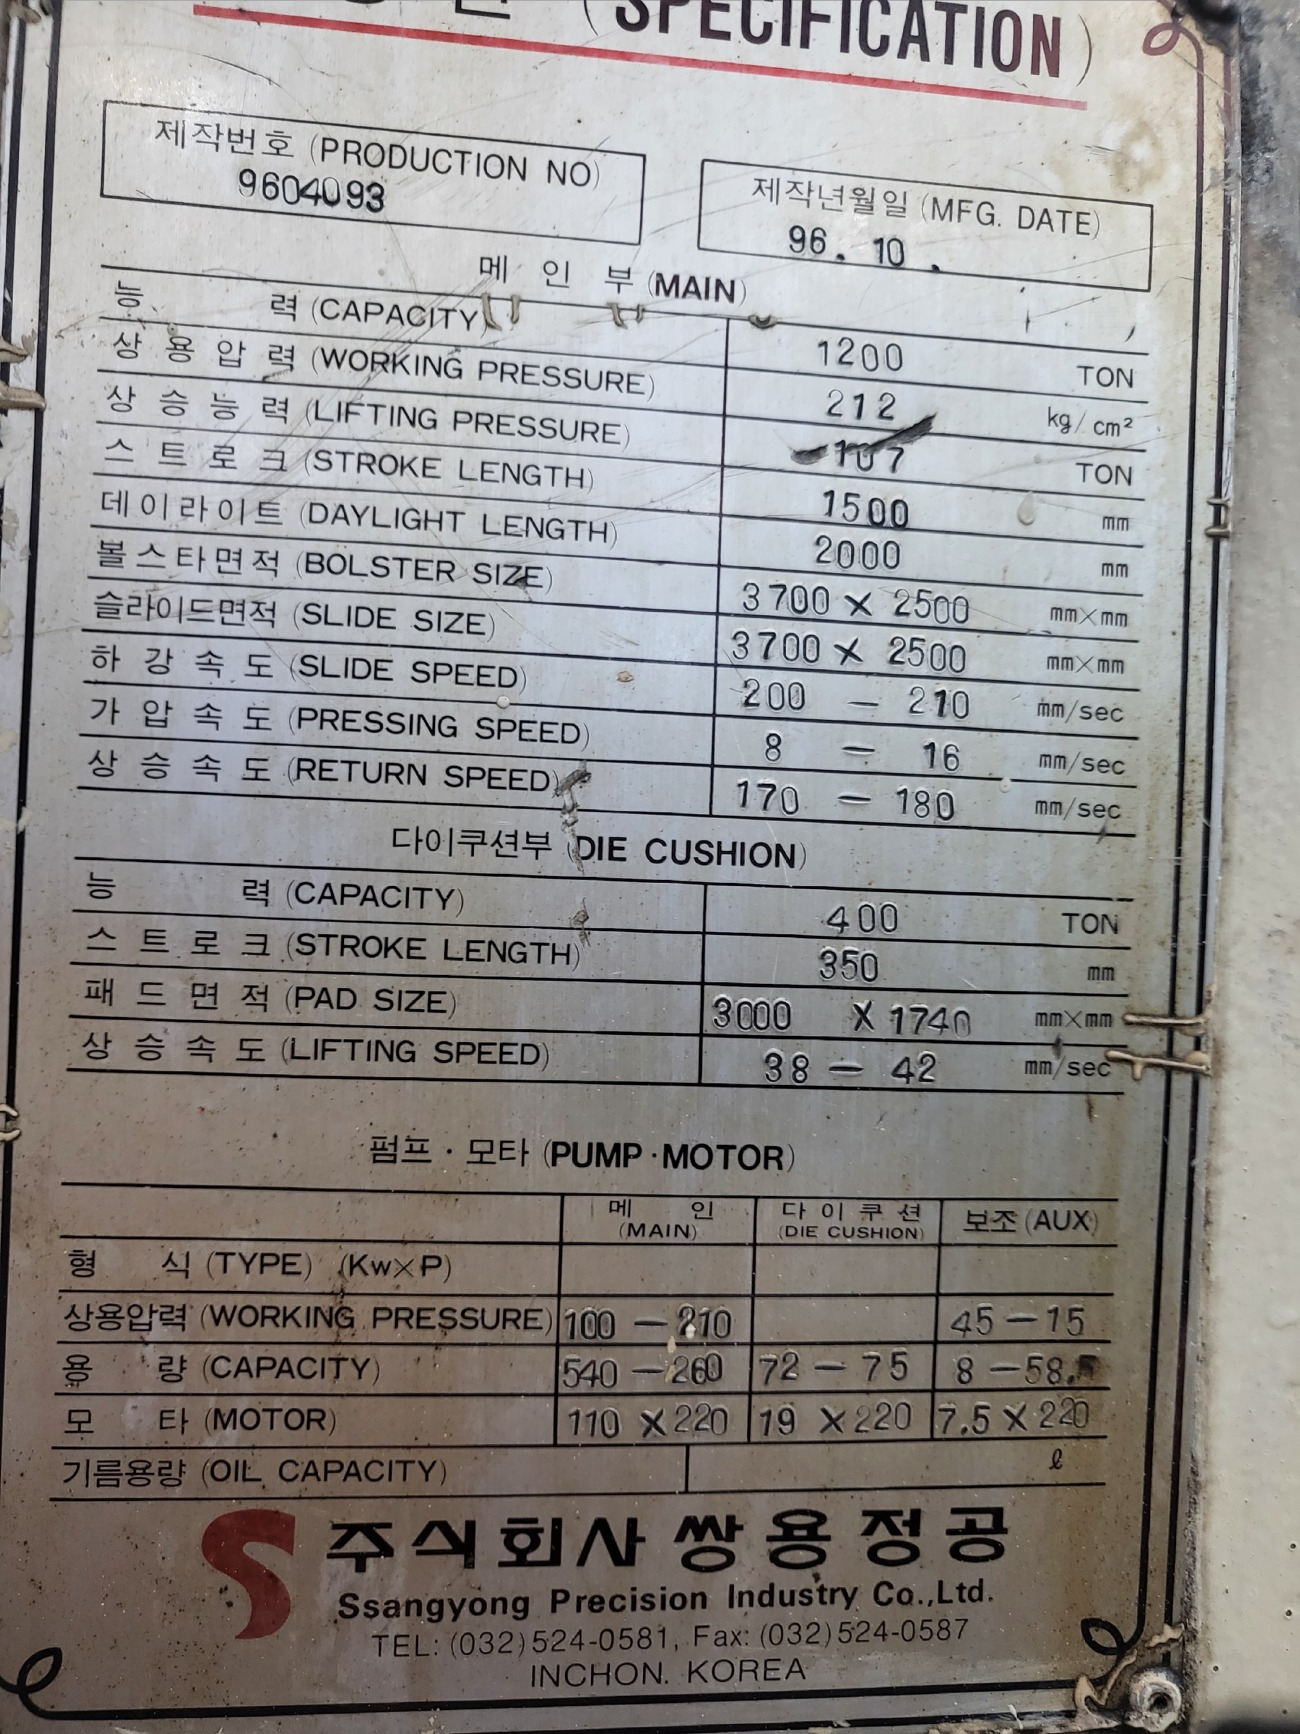 (SPECIFICATION)
제작번호 (PRODUCTION NO)
9604093
제작년월일 (MFG. DATE)
96. 10.
메 인 부 (MAIN)
능 력 (CAPACITY) 1200 TON
상 용 압 력 (WORKING PRESSURE) 212 kg/cm²
상 승 능 력 (LIFTING PRESSURE) 107 TON
스 트 로 크 (STROKE LENGTH) 1500 mm
데이라이트 (DAYLIGHT LENGTH) 2000 mm
볼스타면적 (BOLSTER SIZE) 3700 × 2500 mm×mm
슬라이드면적 (SLIDE SIZE) 3700 × 2500 mm×mm
하 강 속 도 (SLIDE SPEED) 200 － 210 mm/sec
가 압 속 도 (PRESSING SPEED) 8 － 16 mm/sec
상 승 속 도 (RETURN SPEED) 170 － 180 mm/sec
다이쿠션부 (DIE CUSHION)
능 력 (CAPACITY) 400 TON
스 트 로 크 (STROKE LENGTH) 350 mm
패 드 면 적 (PAD SIZE) 3000 X 1740 mm×mm
상 승 속 도 (LIFTING SPEED) 38 － 42 mm/sec
펌프 · 모타 (PUMP · MOTOR)
메 인 다 이 쿠 션 보조 (AUX)
(MAIN) (DIE CUSHION)
형 식 (TYPE) (Kw×P)
상용압력 (WORKING PRESSURE) 100 － 210 45 － 15
용 량 (CAPACITY) 540 － 260 72 － 75 8 － 58.5
모 타 (MOTOR) 110 X 220 19 X 220 7.5 X 220
기름용량 (OIL CAPACITY) ℓ
주식회사 쌍용정공
Ssangyong Precision Industry Co.,Ltd.
TEL: (032) 524-0581, Fax: (032) 524-0587
INCHON. KOREA